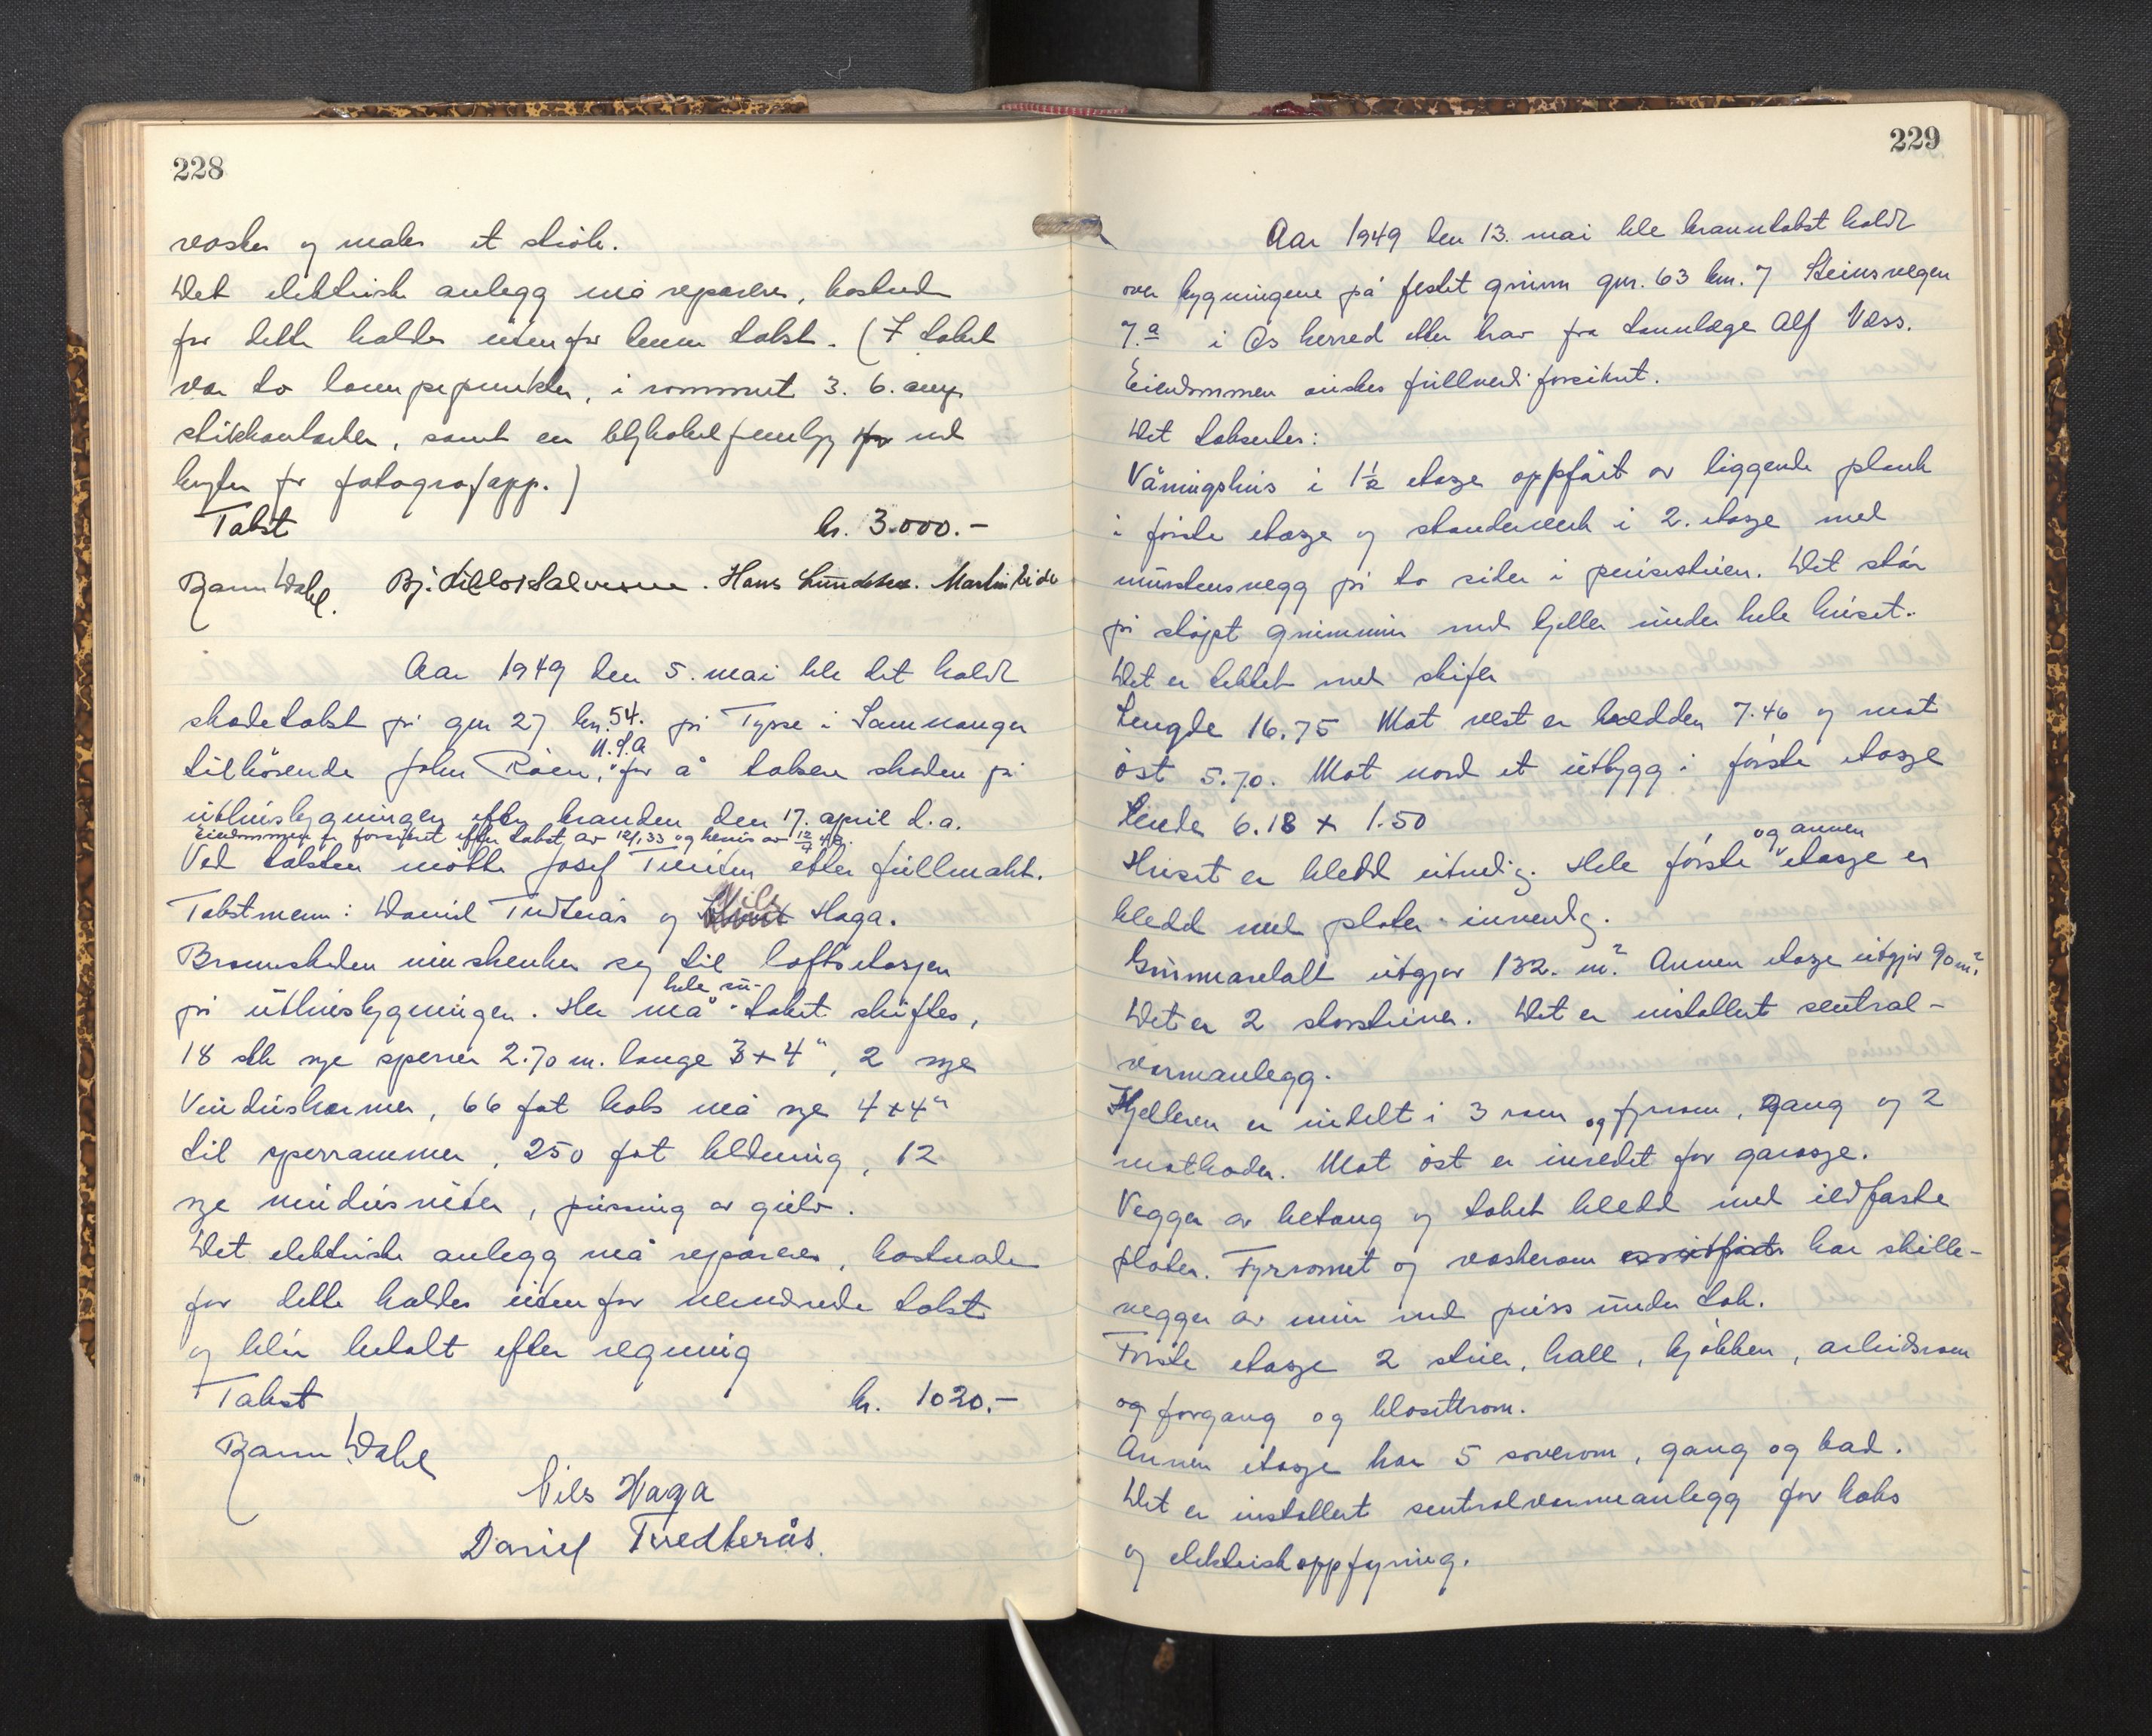 228
vasker og maler et strøk.
Det elektriske anlegg må repareres, kostned
for dette holdes utenfor denne takst. (I taket
var to lampepunkter, i rommet 3. 6. amp.
stikkontakter, samt en blykabel fremlegg for ved
bryter for fotografapp.)
Takst kr. 3.000.-
Bjarne Dahl. Hans Lundsken. Martin Eide
Aar 1949 den 5. mai ble det holdt
skadetakst på gnr 27 bnr. 54. på Tysse i Samnanger
U.S.A
tilhørende John Röen, for å taksere skaden på
uthusbygningen efter branden den 17. april d.a.
Eiendommen er forsikret efter takst av 12/1.33 og
Ved taksten møtte Josef efter fullmakt.
Takstmenn: Daniel Tvedterås og Nils Haga.
Brannskaden innskrenker seg til loftsetasjen
hele su-
på uthusbygningen. Her må taket skiftes,
18 stk nye sperrer 2.70 m. lange 3 x 4", 2 nye
Vinduskarmer, 66 fot kobs må nye 4 x 4"
til sperrammer, 250 fot kledning, 12
nye vindusruter, pussing av gulv.
Det elektriske anlegg må repareres, kostnade
for dette holdes utenfor takst
og blir betalt efter regning
Takst kr. 1020.-
Bjarne Dahl
Nils Haga
Daniel Tvedterås.
229
Aar 1949 den 13. mai ble branntakst holdt
over bygningene på festet grunn gnr. 63 bnr. 7 Steinsvegen
7.a i Os herred etter krav fra tannlæge Alf Væss.
Eiendommen ønskes fullverdiforsikret.
Det takseres:
Våningshus i 1½ etasje oppført av liggende plank
i første etasje og standerverk i 2. etasje med
murstensvegg på to sider i peisestuen. Det står
på støpt grunnmur med kjeller under hele huset.
Det er tekket med skifer
Lengde 16.75 Mot vest er bredden 7.46 og mot
øst 5.70. Mot nord et utbygg i første etasje
6.18 x 1.50
og annen
Huset er kledd utvendig. Hele første etasje er
kledd med plater innvendig.
Grunnarealt utgjør 132. m². Annen etasje utgjør 90 m².
Det er 2 skorsteiner. Det er installert sentral-
varmanlegg.
Kjelleren er inndelt i 3 rom og fyrrom, gang og 2
matboder. Mot øst er inredet for garasje.
Vegger av betong og taket kledd med ildfaste
plater. Fyrrommet og vaskerom har skille-
vegger av mur med puss under tak.
Første etasje 2 stuer, hall, kjøkken, arbeidsrom
og forgang og klosettrom.
Annen etasje har 5 soverom, gang og bad.
Det er installert sentralvarmeanlegg for koks
og elektrisk oppfyring.